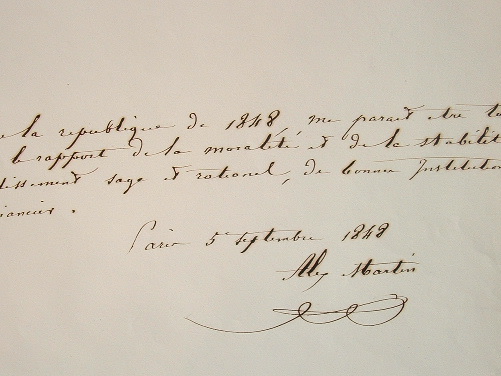 la republique de 1848, me parait etre
le rapport de la moralité et de la stabilit
dissement sage et rationel, de bonnes Institution
nancier.
Paris 5 septembre 1848
Alex Martin